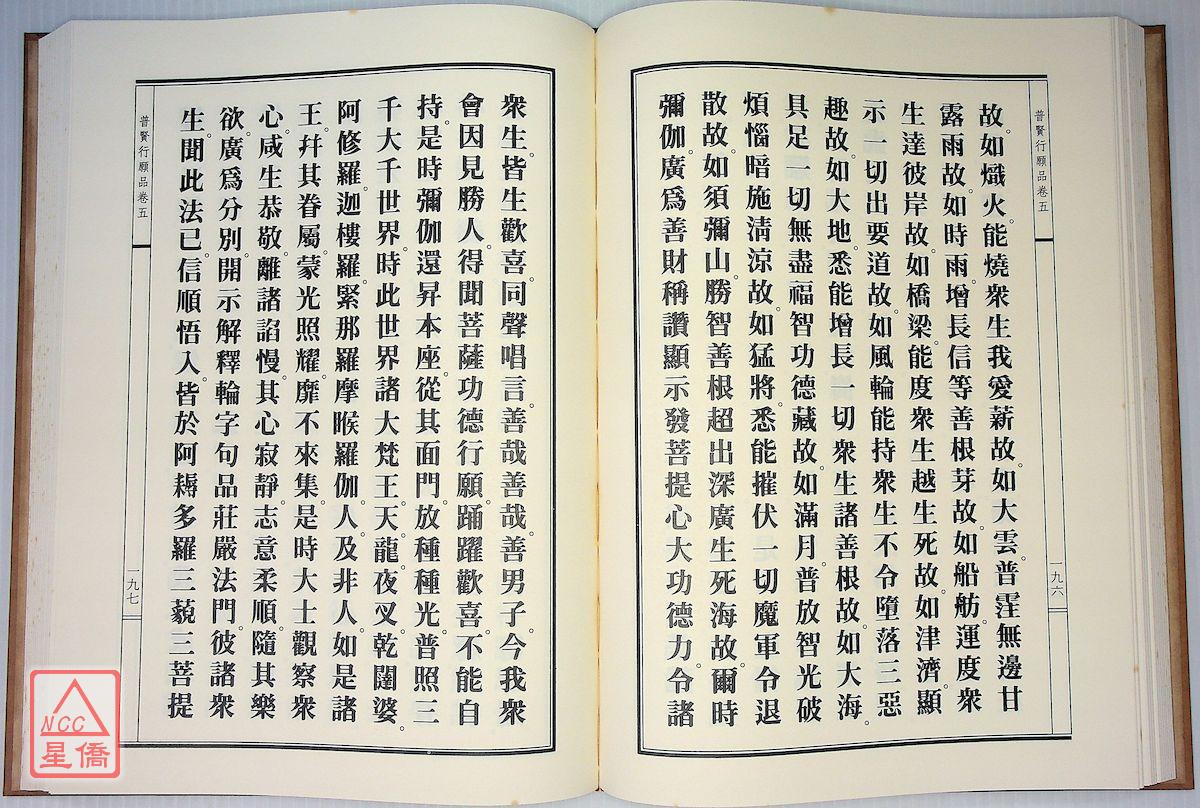 普賢行願品卷五
一九六
故。如熾火。能燒衆生我愛薪故。如大雲。普霔無邊甘
露雨故。如時雨。增長信等善根芽故。如船舫。運度衆
生達彼岸故。如橋梁。能度衆生越生死故。如津濟。顯
示一切出要道故。如風輪能持衆生不令墮落三惡
趣故。如大地。悉能增長一切衆生諸善根故。如大海。
具足一切無盡福智功德藏故。如滿月。普放智光破
煩惱暗施淸涼故。如猛將。悉能摧伏一切魔軍令退
散故。如須彌山。勝智善根超出深廣生死海故。爾時
彌伽。廣爲善財稱讚顯示發菩提心大功德力。令諸
衆生。皆生歡喜。同聲唱言。善哉善哉。善男子。今我衆
會因見勝人。得聞菩薩功德行願。踊躍歡喜。不能自
持。是時彌伽還昇本座。從其面門。放種種光。普照三
千大千世界。時此世界諸大梵王。天。龍。夜叉。乾闥婆。
阿修羅。迦樓羅。緊那羅摩睺羅伽。人。及非人。如是諸
王。幷其眷屬。蒙光照耀。靡不來集。是時大士觀察衆
心。咸生恭敬。離諸諂慢。其心寂靜。志意柔順。隨其樂
欲。廣爲分別。開示解釋輪字句品莊嚴法門。彼諸衆
生。聞此法已。信順悟入。皆於阿耨多羅三藐三菩提
普賢行願品卷五
一九七
NCC
星僑